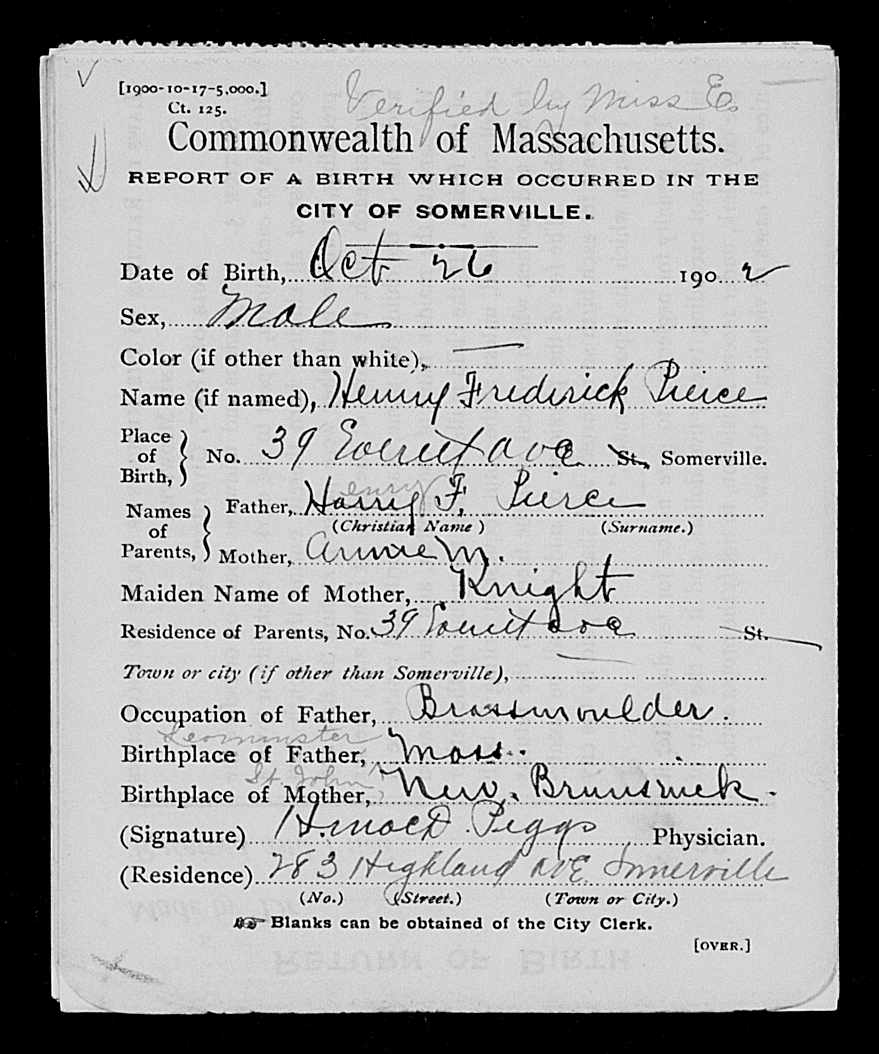 [1900-10-17-5,000.]
Ct. 125.
Verified by Miss E.
Commonwealth of Massachusetts.
REPORT OF A BIRTH WHICH OCCURRED IN THE
CITY OF SOMERVILLE.
Date of Birth, Oct 26 1902
Sex, Male
Color (if other than white), —
Name (if named), Henry Frederick Pierce
Place of Birth, No. 39 Everett ave St., Somerville.
Names of Parents, Father, Harry F. Pierce
enry
(Christian Name) (Surname.)
Mother, Annie M.
Maiden Name of Mother, Knight
Residence of Parents, No. 39 Everett ave St.
Town or city (if other than Somerville), —
Occupation of Father, Brassmoulder.
Leominster
Birthplace of Father, Mass.
St. John
Birthplace of Mother, New. Brunswick.
(Signature) H. D. Piggs Physician.
(Residence) 283 Highland AVE Somerville
(No.) (Street.) (Town or City.)
Blanks can be obtained of the City Clerk.
[OVER.]
RETURN OF BIRTH